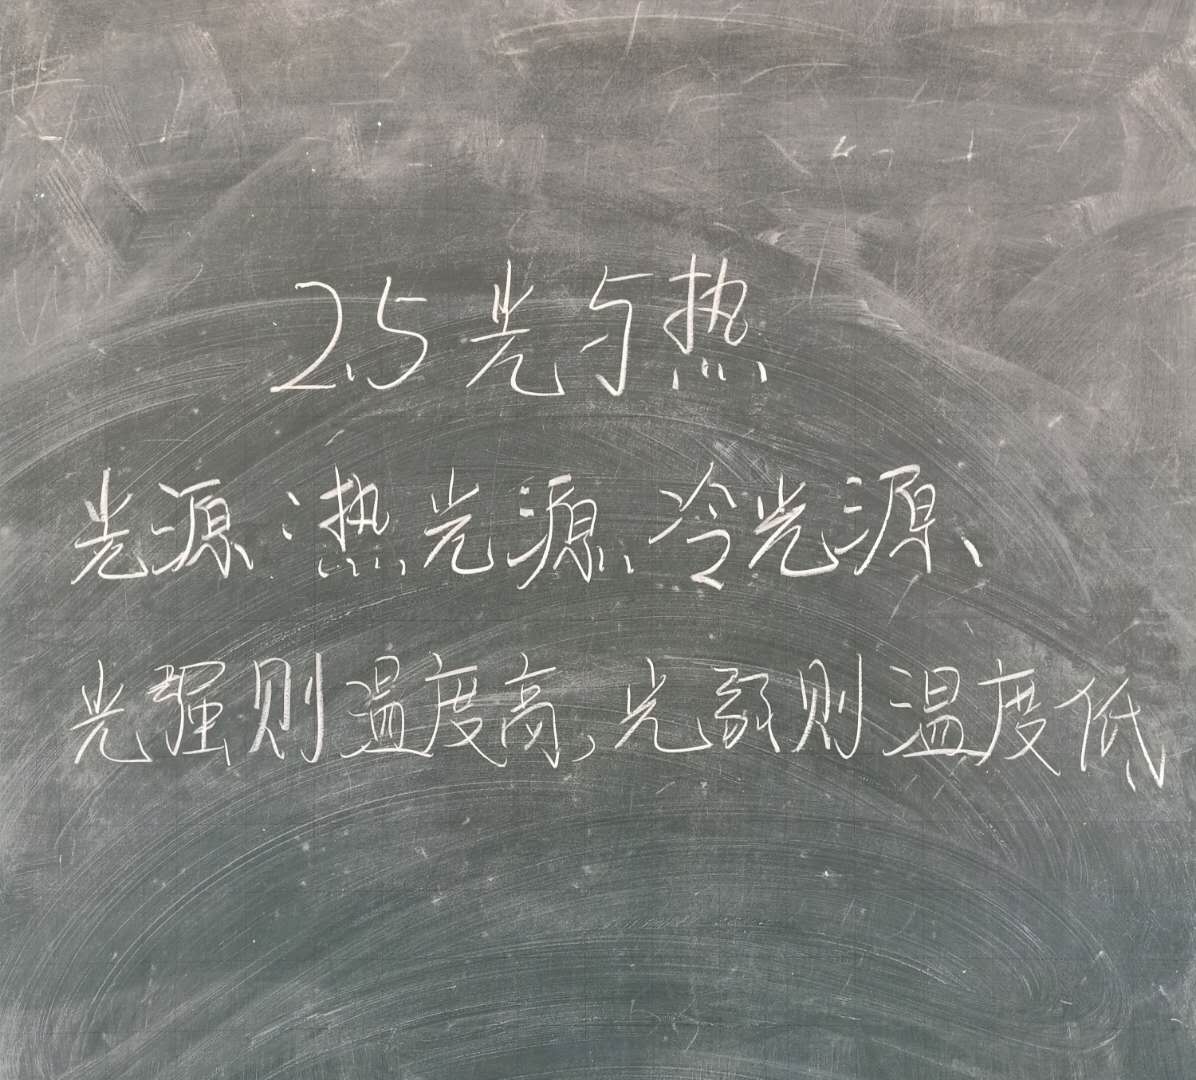 2.5光与热
光源:热光源、冷光源、
光强则温度高,光弱则温度低